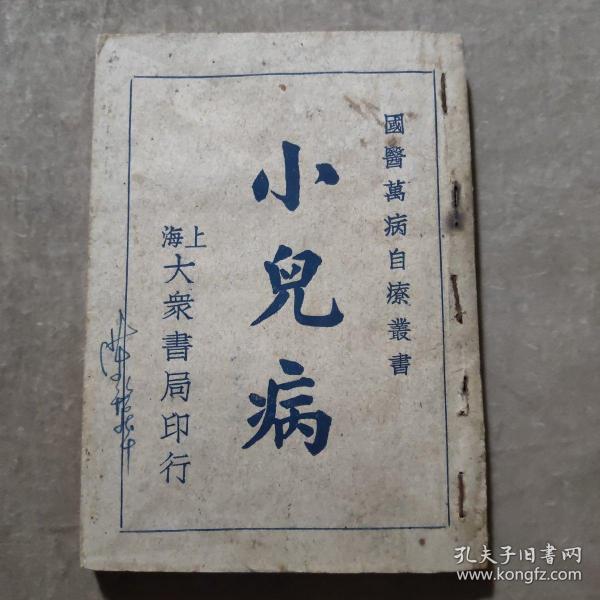 國醫萬病自療叢書
小兒病
上海
大衆書局印行
孔夫子旧书网
www.kongfz.com